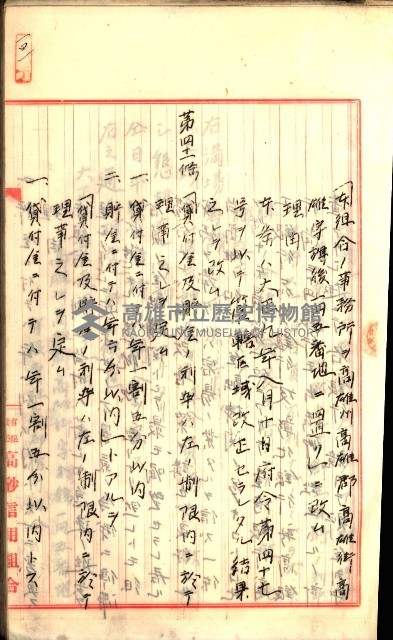 「本組合ノ事務所ヲ高雄州高雄郡高雄街高
雄字譚後一百五番地ニ置ク」ニ改ム
理由
本条ハ大正九年八月十日府令第四十七
号ヲ以テ管轄区域改正セラレタル結果
之レヲ改ム
第四十一條
「貸付金及貯金ノ利率ハ左ノ制限内ニ於テ
理事之レヲ定ム
一、貸付金ニ付テハ年一割五分以内
二、貯金ニ付テハ年 分以内」トアルヲ
「貸付金及貯金ノ利率ハ左ノ制限内ニ於テ
理事之レヲ定ム
一、貸付金ニ付テハ年一割五分以内トス
高砂信用組合
高雄市立歷史博物館
KAOHSIUNG MUSEUM OF HISTORY